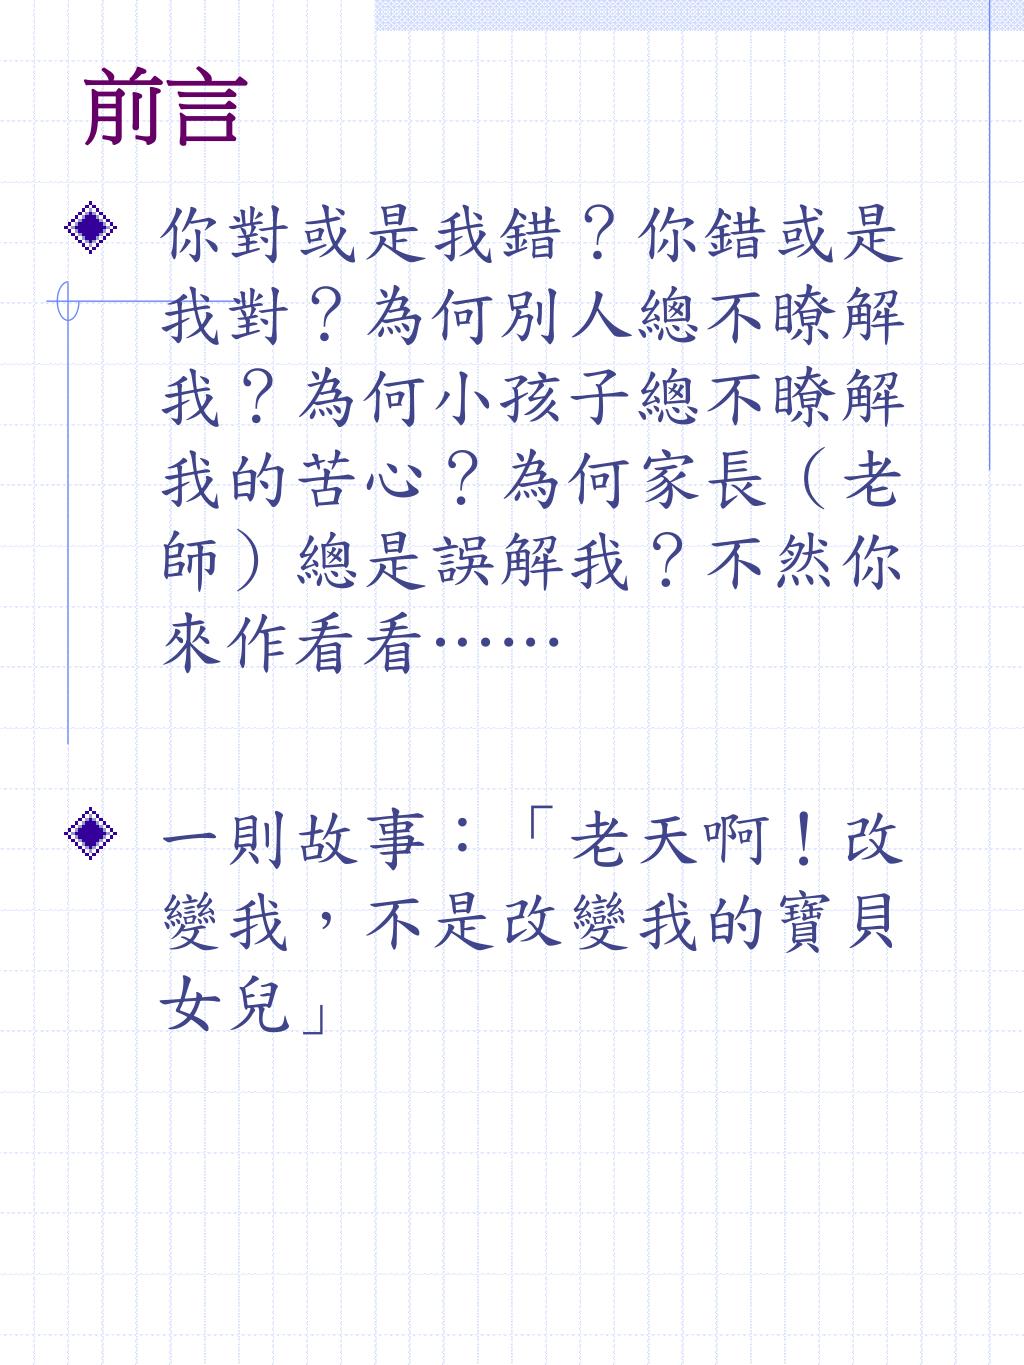 前言
你對或是我錯？你錯或是
我對？為何別人總不瞭解
我？為何小孩子總不瞭解
我的苦心？為何家長（老
師）總是誤解我？不然你
來作看看……
一則故事：「老天啊！改
變我，不是改變我的寶貝
女兒」